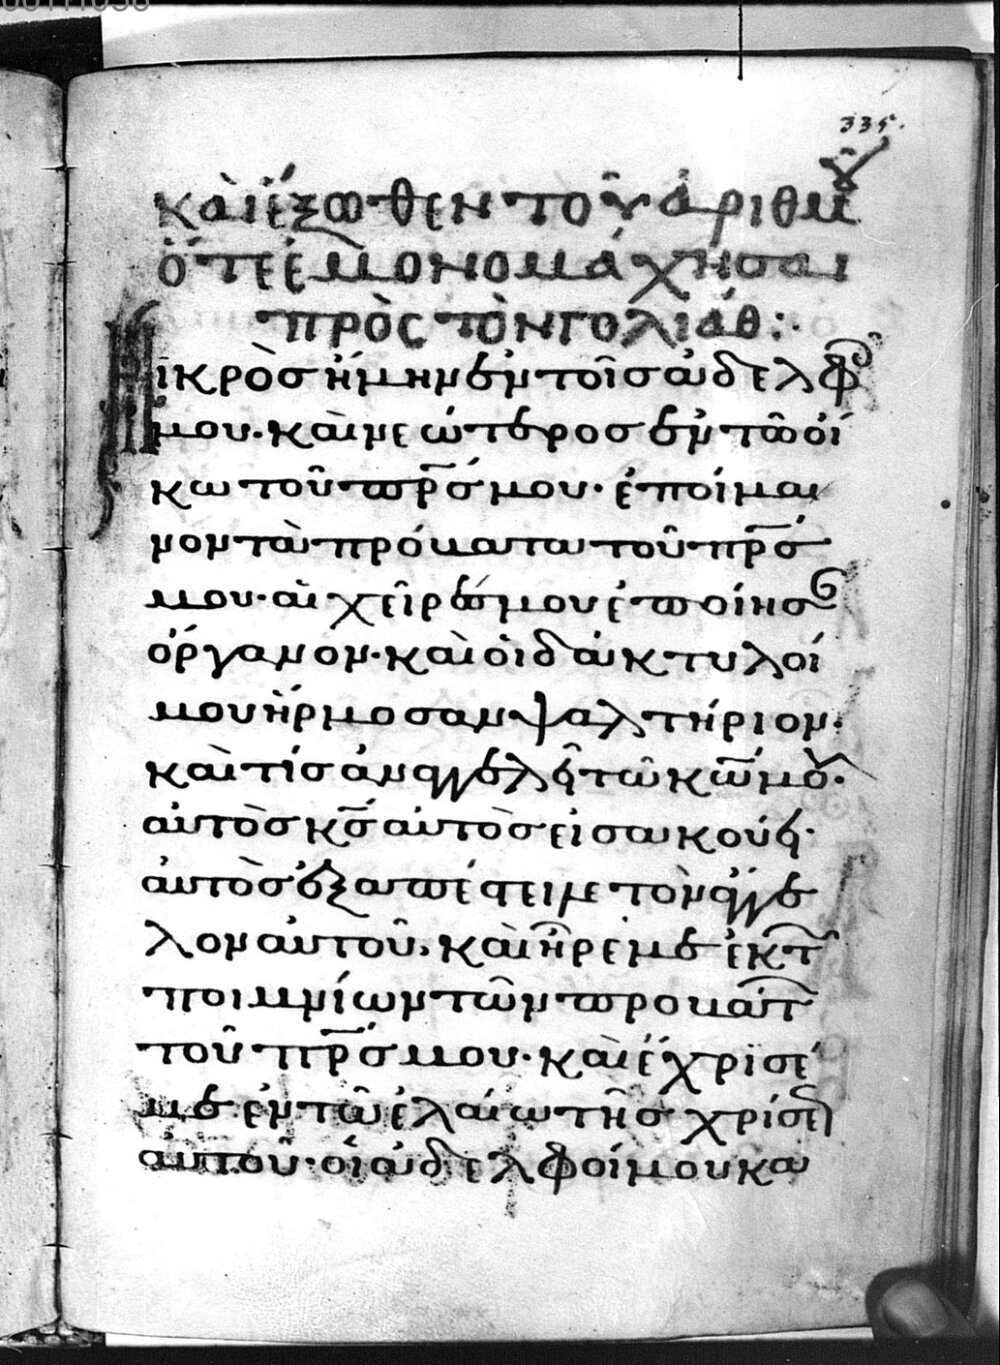 335.
καὶ ἔξωθεν τοῦ ἀριθμοῦ
ὅτε ἐμονομάχησαι
πρὸς τὸν γολιάθ:·
Μικρὸσ ἤμην ἐν τοῖσ ἀδελφοῖσ
μου· καὶ νεώτεροσ ἐν τῶ οἴ
κω τοῦ πρ̅σ μου· ἐποίμαι
νον τὰ πρόβατα τοῦ πρ̅σ
μου· αἱ χεῖρέσ μου ἐποίησαν
ὄργανον· καὶ οἱ δάκτυλοί
μου ἥρμοσαν ψαλτήριον·
καὶ τίσ ἀναγγελεῖ τῶ κω̅ μου·
αὐτὸσ κ̅σ αὐτὸσ εἰσακούει·
αὐτὸσ ἐξαπέστειλε τὸν ἄγγε
λον αὐτοῦ, καὶ ἦρέ με ἐκ τῶν
ποιμνίων τῶν προβάτων
τοῦ πρ̅σ μου· καὶ ἔχρισέ
με ἐν τῶ ἐλαίω τῆσ χρίσεωσ
αὐτοῦ· οἱ ἀδελφοί μου κα